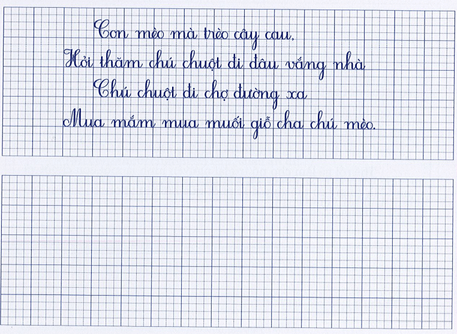 Con mèo mà trèo cây cau.
Hỏi thăm chú chuột đi đâu vắng nhà
Chú chuột đi chợ đường xa
Mua mắm mua muối giỗ cha chú mèo.